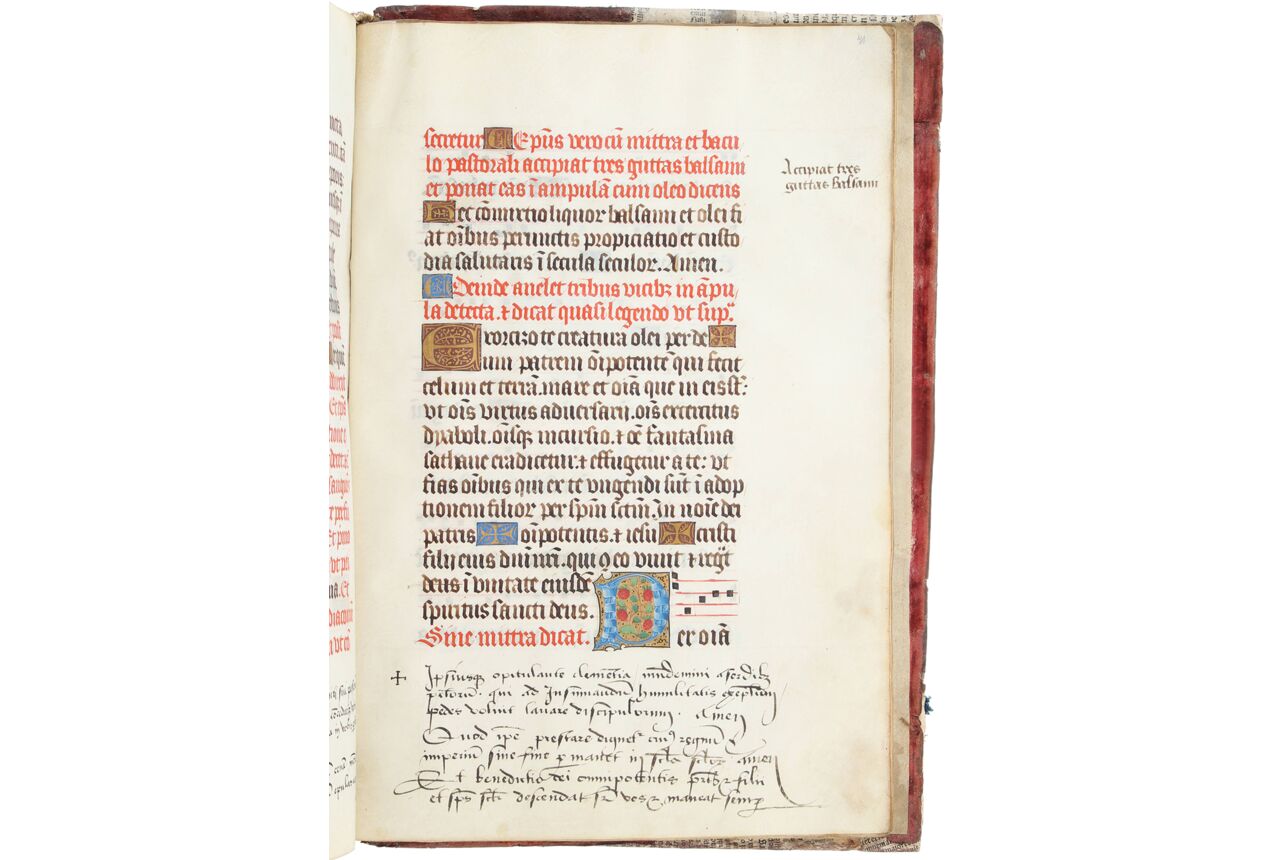 secretur E Ep̄us vero cū mittra et bacu
lo pastorali accipiat tres guttas balsami
et ponat eas ī ampulā cum oleo dicens
Hec cōmixtio liquor balsami et olei fi
at oībus perunctis propiciatio et custo
dia salutaris ī secula seculor. Amen.
Deinde anelet tribus vicibꝫ in āpu
la detecta. ⁊ dicat quasi legendo vt sup.
Exorcizo te creatura olei per de ✠
um patrem oīpotentē qui fecit
celum et terrā. mare et oīa que in eis st̄:
vt oīs virtus adversarii. oīs exercitus
dyaboli. oīsqꝫ incursio. ⁊ oē fantasma
sathane eradicetur. ⁊ effugetur a te: vt
fias oībus qui ex te ungendi sūt ī adop
tionem filior per sp̄m sctm̄. In noīe dei
patris ✠ oīpotentis. ⁊ iesu ✠ cristi
filii eius dn̄i nr̄i. qui ꝯ eo viuit ⁊ regt̄
deus ī vnitate eiusdē
spiritus sancti deus.
Sine mittra dicat. Per oīa
Accipiat tres
guttas Balsami
✠ Ipsiusqꝫ opitulante clemētia mūdemini a sordibꝫ
pctōrum. qui ad Insinuandū humilitatis exēplum
pedes voluit lauare discipulorum. Amen
Quod ip̄e prestare dignet̄ cuiꝰ regnū ⁊
imperiū sine fine ꝑmanet in sc̄la sc̄lor amen
Et benedictio dei omnipotentis pr̄is ⁊ filii
et sp̄s sc̄ti descendat sr̄ vos ⁊ maneat semꝑ